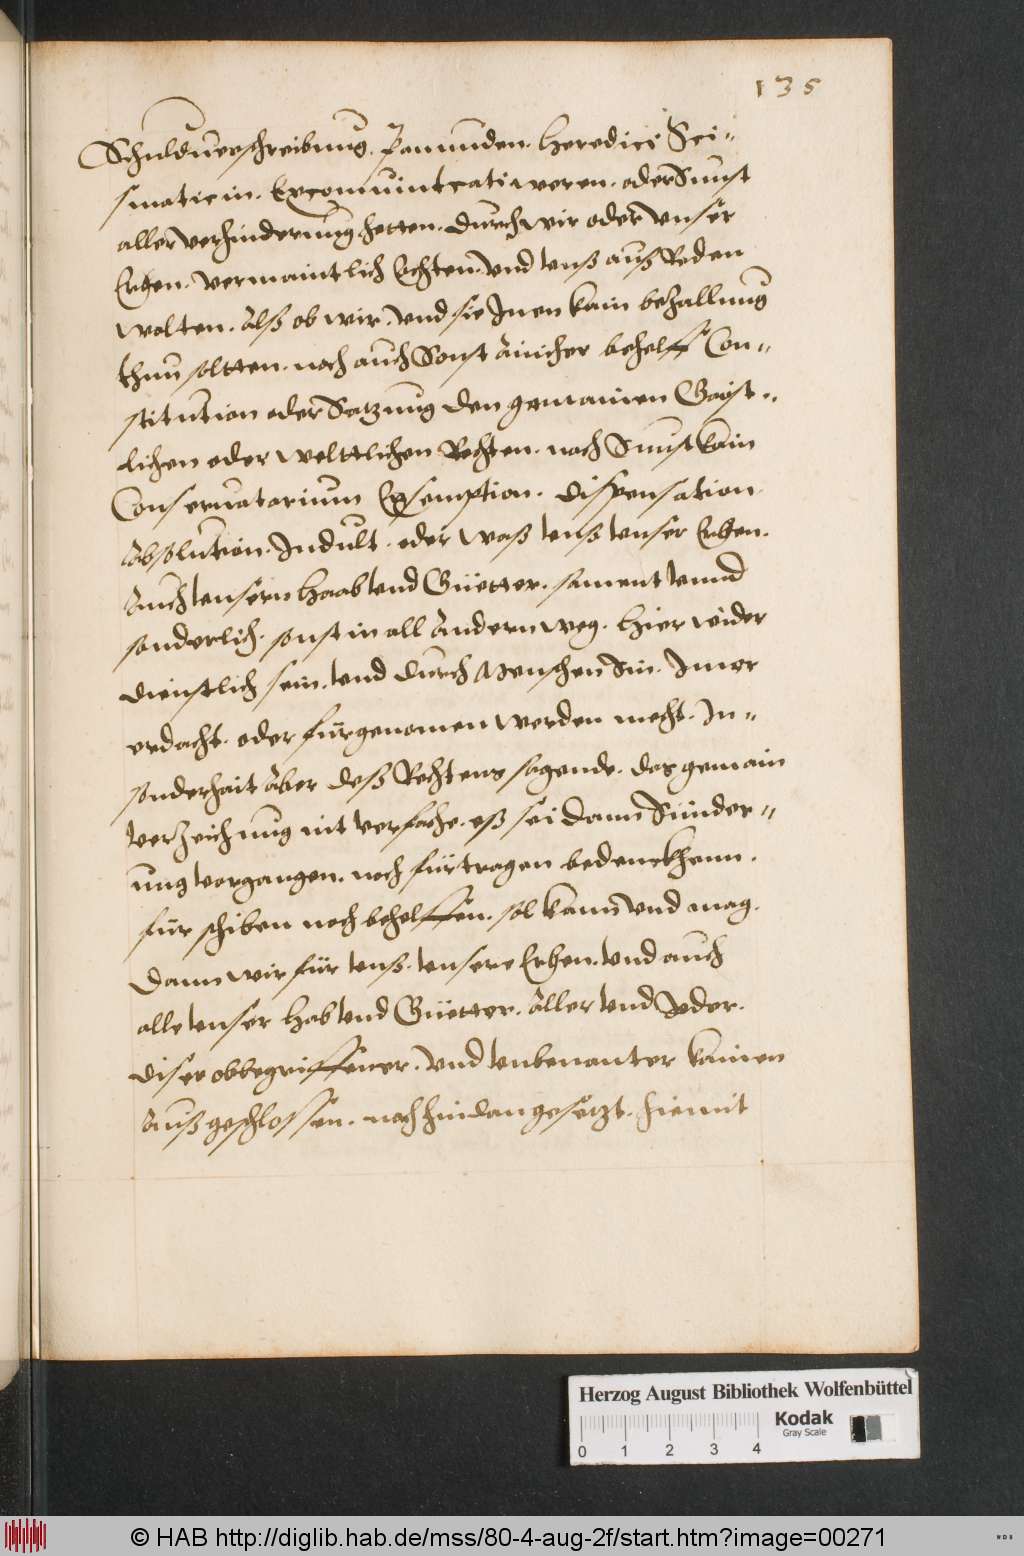 135
Schuldverschreibung. Pannnden. Heredici Sci-
smaticin. Excomunitcati weren. oder Sunst
aller verhinderung hetten. durch wir oder vnser
Erben. vermaintlich Echten. vnd vnß auß Reden
wolten. Alß ob wir. vnd sie Inen kain bezallung
thun soltten. noch auch Sonst Ainicher behelff Con-
stitution oder Satzung den gemainen Gaist-
lichen oder welttlichen Rechten. noch Sunst kain
Conseruatorium Exsemption. dispensation
Absolution. Indult. oder waß vnß vnser Erben.
Auch vnsern Haab vnd Güetter. sament vnnd
sonderlich. sonst in all Andern weg. hier wider
dienstlich sein. vnd durch Menschen Sin. Imer
erdacht. oder fürgenomen werden mecht. In-
sonderhait Aber deß Rechtens sagende. das gemain
verzeichnung nit verfache. eß sei dann Sünder-
ung vorgangen. noch fürtragen bedenckhenn.
für schiben noch behelffen. sol kann vnd mag.
Dann wir für vnß. vnsere Erben. vnd auch
alle vnser Hab vnd Güetter. Aller vnd Jeder.
diser obbegriffener. vnd vnbenanter kainen
Außgeschlossen. noch hindangesetzt. hiemit
Herzog August Bibliothek Wolfenbüttel
0 1 2 3 4
Kodak
Gray Scale
© HAB http://diglib.hab.de/mss/80-4-aug-2f/start.htm?image=00271